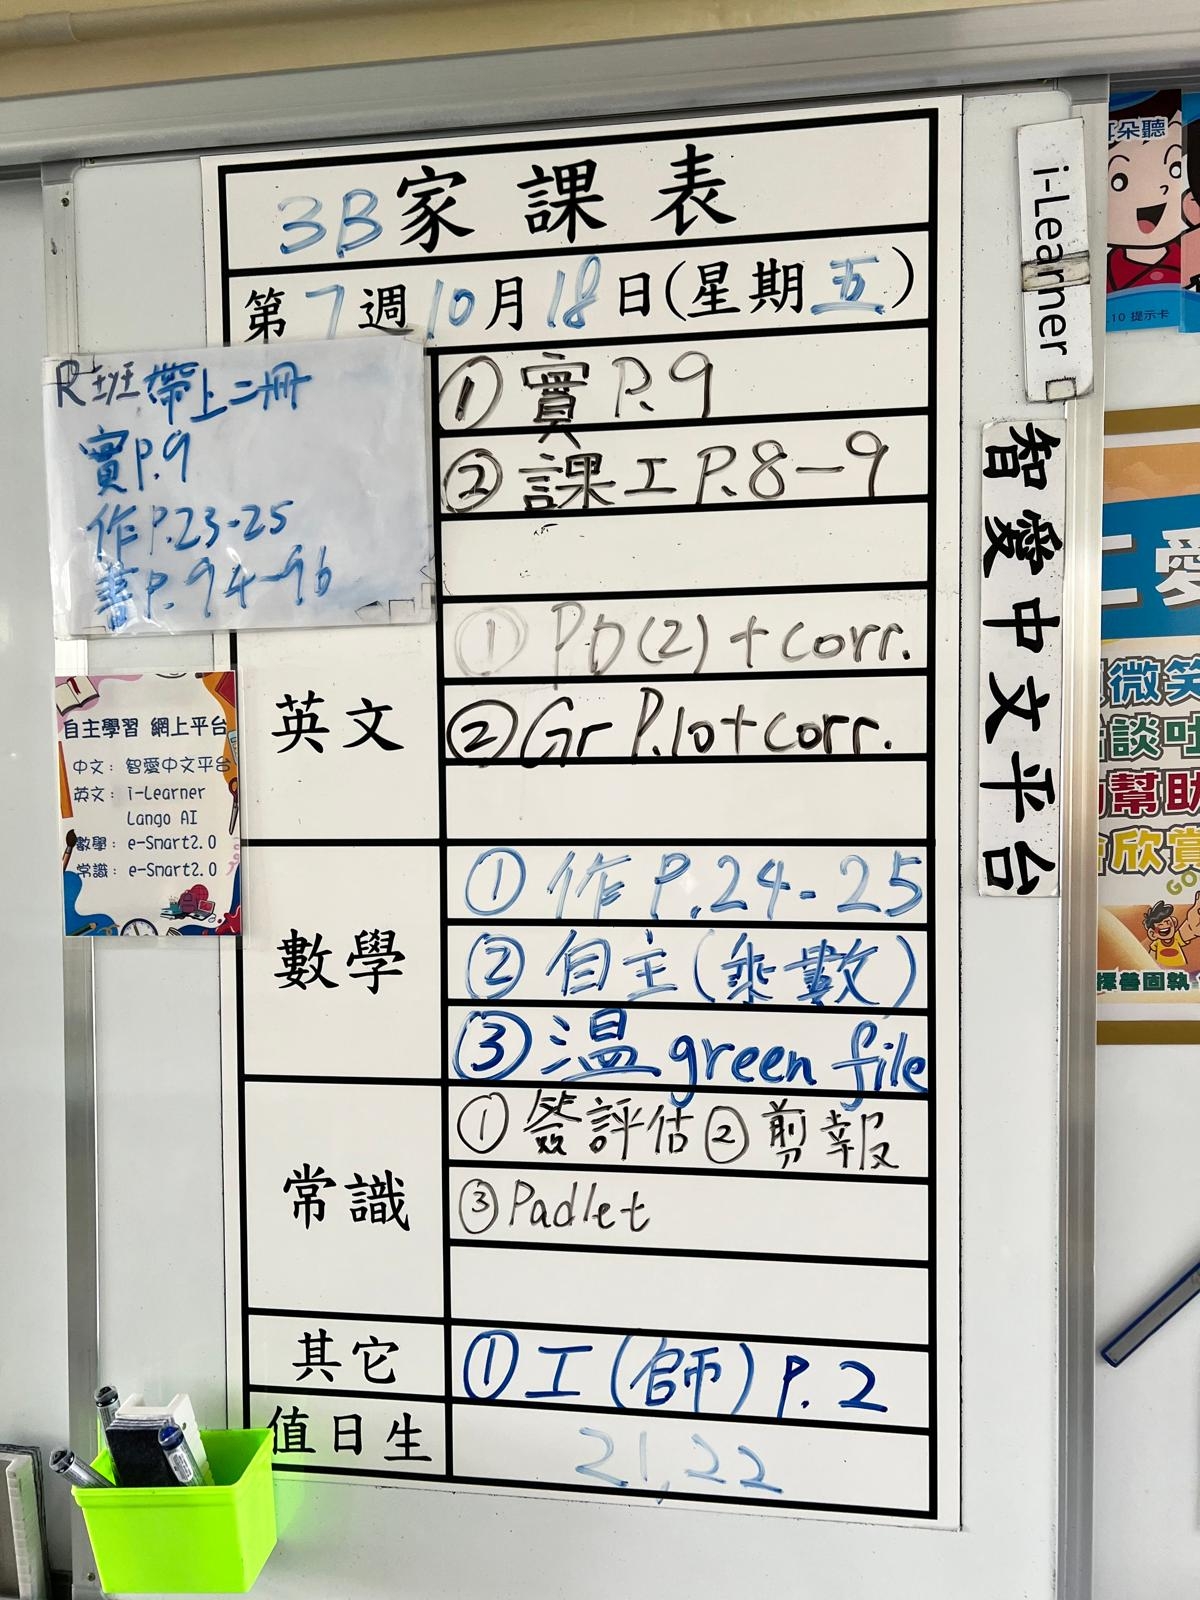 3B家課表
第7週10月18日(星期五)
R班帶上二冊
實P.9
作P.23-25
書P.94-96
①實P.9
②課工P.8-9
英文
①PD(2)+corr.
②Gr P.10+corr.
數學
①作P.24-25
②自主(乘數)
③溫green file
常識
①簽評估②剪報
③Padlet
其它
①工(師)P.2
值日生
21,22
自主學習 網上平台
中文：智愛中文平台
英文：i-Learner
Lango AI
數學：e-Smart2.0
常識：e-Smart2.0
i-Learner
智愛中文平台
耳朵聽
.10 提示卡
仁愛
微笑
談吐
幫助
欣賞
GO
擇善固執